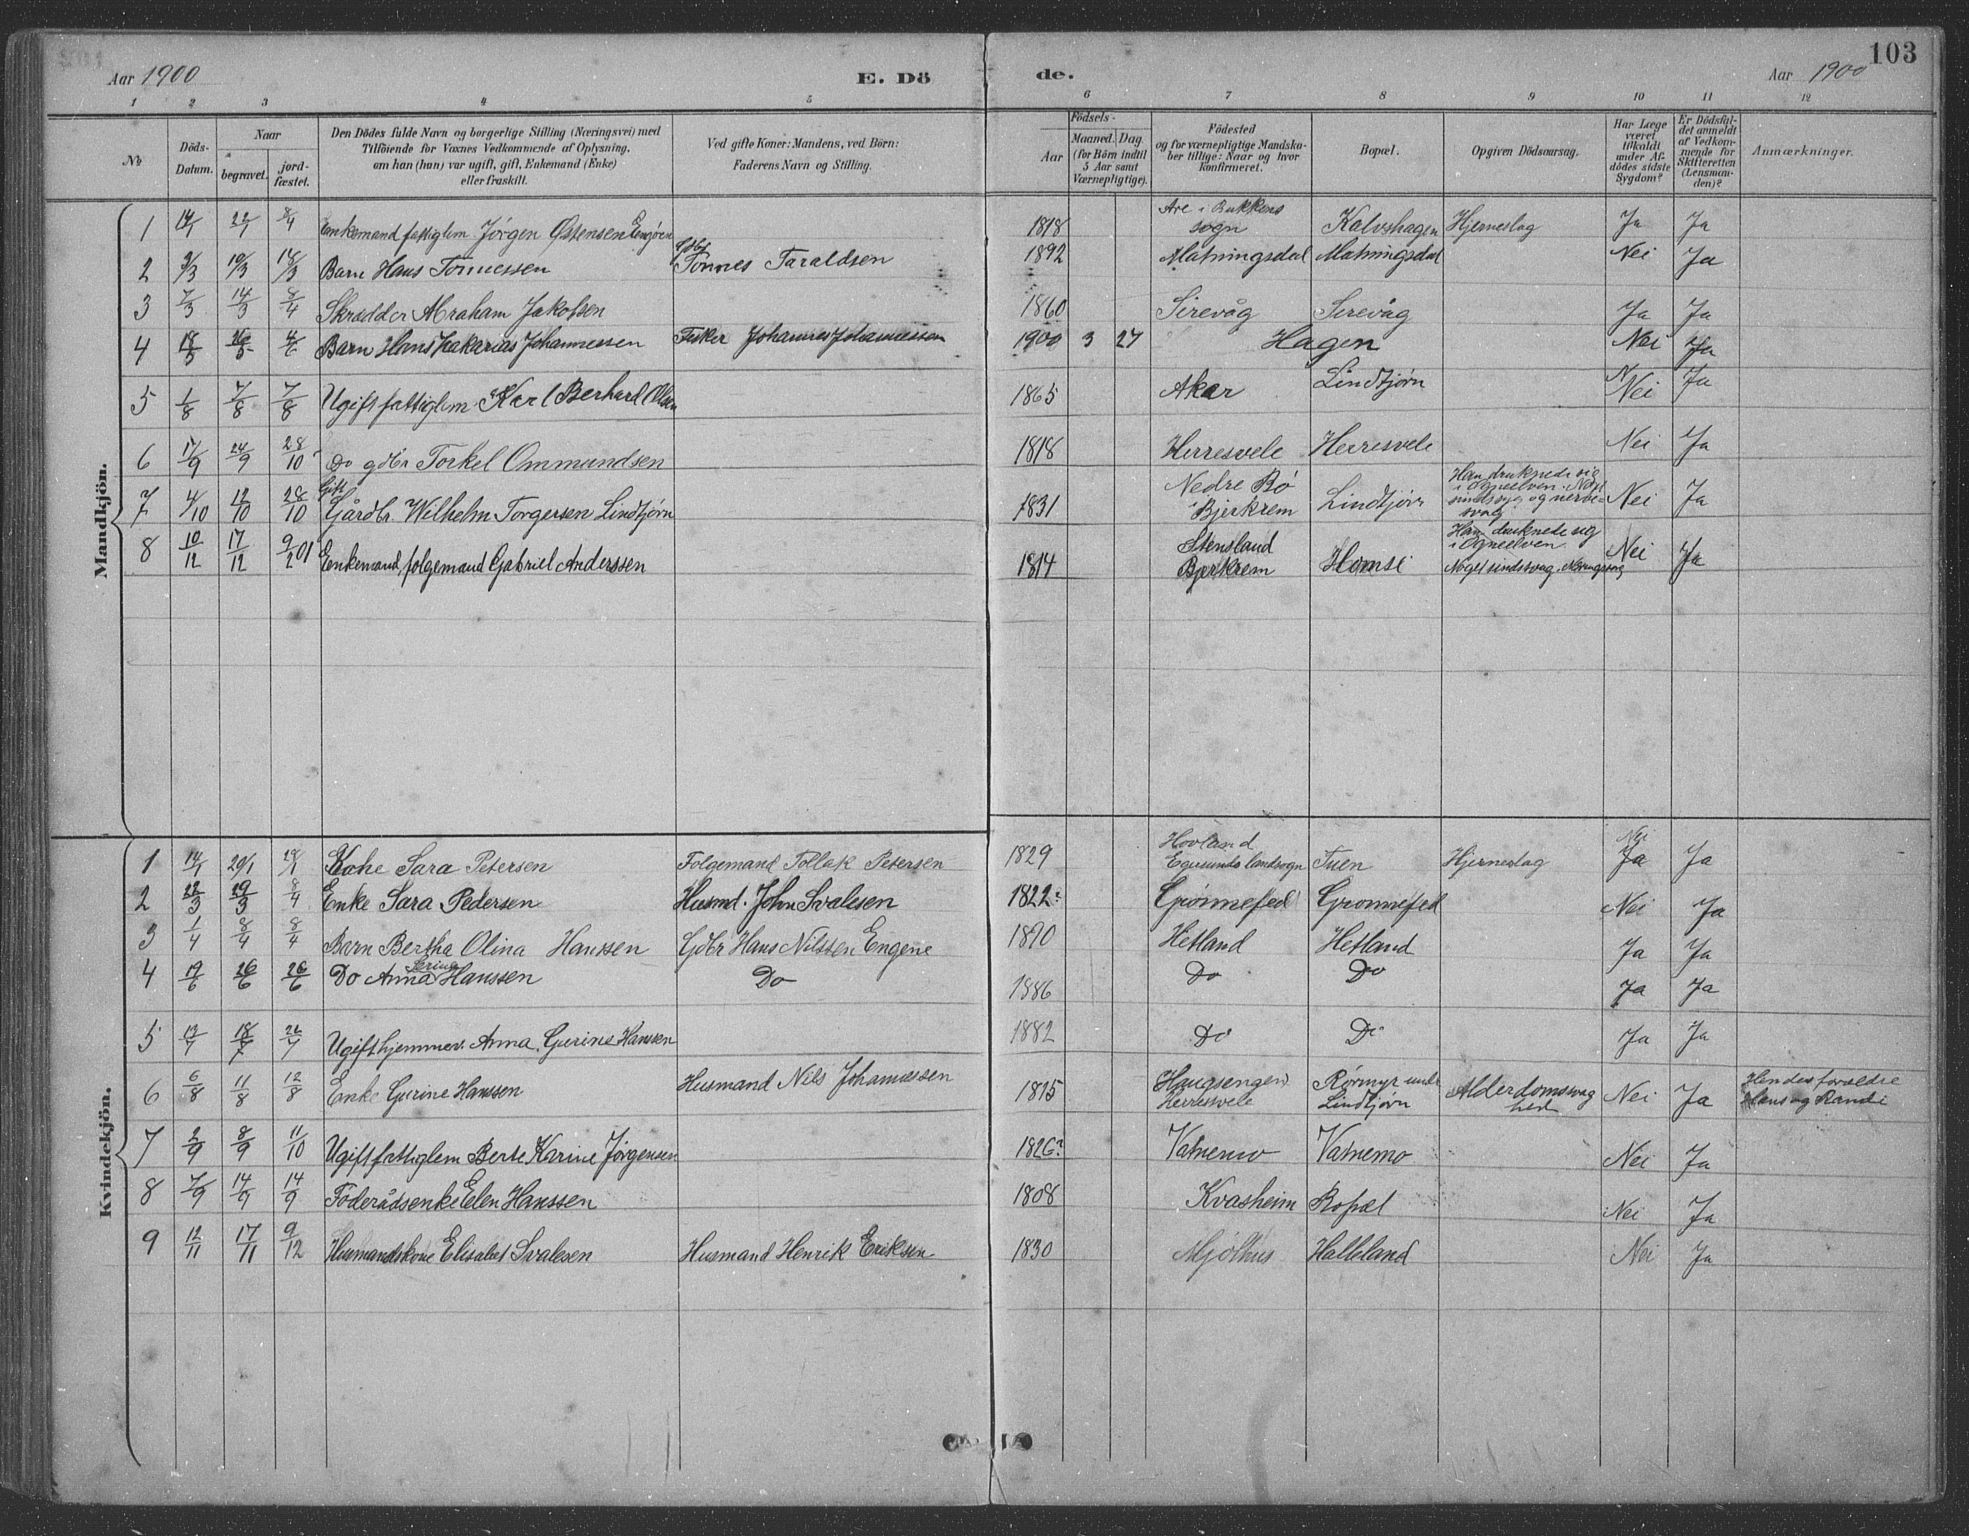 103
Aar 1900 E. Dö de. Aar 1900
1 2 3 4 5 6 7 8 9 10 11 12
No
Döds-Datum.
Naar
begravet.
jord-fæstet.
Den Dödes fulde Navn og borgerlige Stilling (Næringsvei) med
Tilföiende for Voxnes Vedkommende af Oplysning,
om han (hun) var ugift, gift, Enkemand (Enke)
eller fraskilt.
Ved gifte Koner: Mandens, ved Börn:
Faderens Navn og Stilling.
Födsels-
Aar
Maaned. Dag
(for Börn indtil
5 Aar samt
Værnepligtige).
Födested
og for værnepligtige Mandska-
ber tillige: Naar og hvor
konfirmeret.
Bopæl.
Opgiven Dödsaarsag.
Har Læge
været
tilkaldt
under Af-
dödes sidste
Sygdom?
Er Dödsful-
det anmeldt
af Vedkom-
mende for
Skifteretten
(Lensman-
den)?
Anmærkninger.
Mandkjön.
1 14/1 22/1 8/4 Enkemand fattiglem Jørgen Østensen 1818 Are i Bukkens sogn Kalvshagen Hjerneslag Ja Ja
2 3/3 10/3 18/3 Barn Hans Tønnessen Gdbr Tønnes Taraldsen 1892 Matningsdal Matningsdal Nei Ja
3 7/3 14/3 8/4 Skrædder Abraham Jakobsen 1860 Sirevåg Sirevåg Ja Ja
4 18/5 26/5 4/6 Barn Hans Zakarias Johannessen Fisker Johannes Johannessen 1900 3 27 Hagen Nei Ja
5 1/8 7/8 7/8 Ugift fattiglem Karl Berhard Olsen 1865 Aker Lindtjørn Nei Ja
6 17/9 24/9 28/10 Do gdbr Torkel Ommundsen 1818 Herresvele Herresvele Nei Ja
7 4/10 12/10 28/10 Gift Gårdbr. Wilhelm Torgersen Lindtjørn 1831 Nedre Bø Bjerkrem Lindtjørn Han druknede sig i Ogneelven. sindssyg og nervesvag Nei Ja
8 10/12 17/12 9/2 01 Enkemand, folgemand Gabriel Anderssen 1814 Stensland Bjerkrem Homse Han druknede sig i Ogneelven Noget sindssvag. Nei Ja
Kvindekjön.
1 14/1 20/1 28/1 Kone Sara Petersen Folgemand Tollak Petersen 1829 Hovland Egersunds landsogn Tuen Hjerneslag Nei Ja Ja
2 22/3 29/3 8/4 Enke Sara Pedersen Husmd. John Svalesen 1822? Grønnefed Grønnefed Nei Ja
3 1/4 8/4 8/4 Barn Bertha Olina Hanssen Gdbr Hans Nilssen Engene 1890 Hetland Hetland Ja Ja
4 19/6 26/6 26/6 Do Anna Serina Hanssen Do 1886 Do Do Ja Ja
5 12/7 18/7 26/7 Ugift hjemmev. Anna Gurine Hanssen 1882 Do Do Ja Ja
6 6/8 11/8 12/8 Enke Gurine Hanssen Husmand Nils Johannessen 1815 Haugsengen Herresvele Rørmyr under Lindtjørn Alderdomssvaghed Nei Ja Hendes forældre Hans og Randi
7 2/9 8/9 11/10 Ugift fattiglem Berte Karine Jørgensen 1826? Vatnemo Vatnemo Nei Ja
8 7/9 14/9 14/9 Føderådsenke Elen Hanssen 1808 Kvasheim Ropæl Nei Ja
9 12/11 17/11 9/12 Husmandskone Elisabet Svalesen Husmand Henrik Eriksen 1830 Mjølhus Halleland Nei Ja